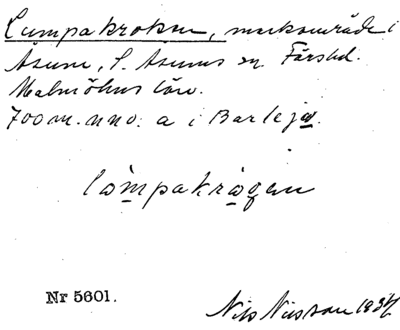 Lumpakroken, markområde i
Åsum, S. Åsums sn Färs hd.
Malmöhus län.
700 m. nno. a i Barleja.
låmpakrågen
Nr 5601.
Nils Nilsson 1934